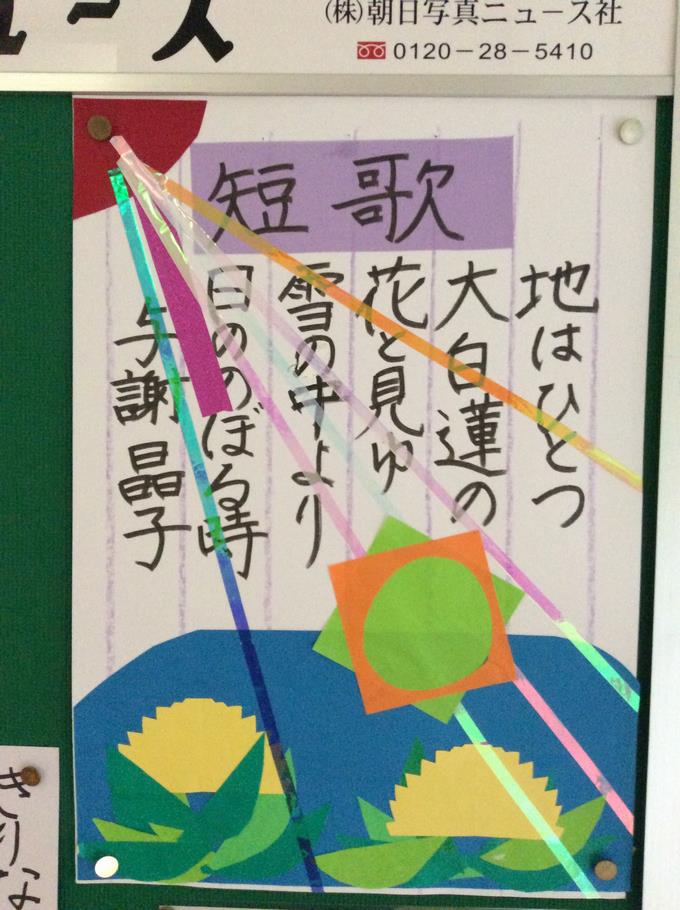 ース
㈱朝日写真ニュース社
0120-28-5410
短歌
地はひとつ
大白蓮の
花と見ゆ
雪の中より
日ののぼる時
与謝晶子
きりな